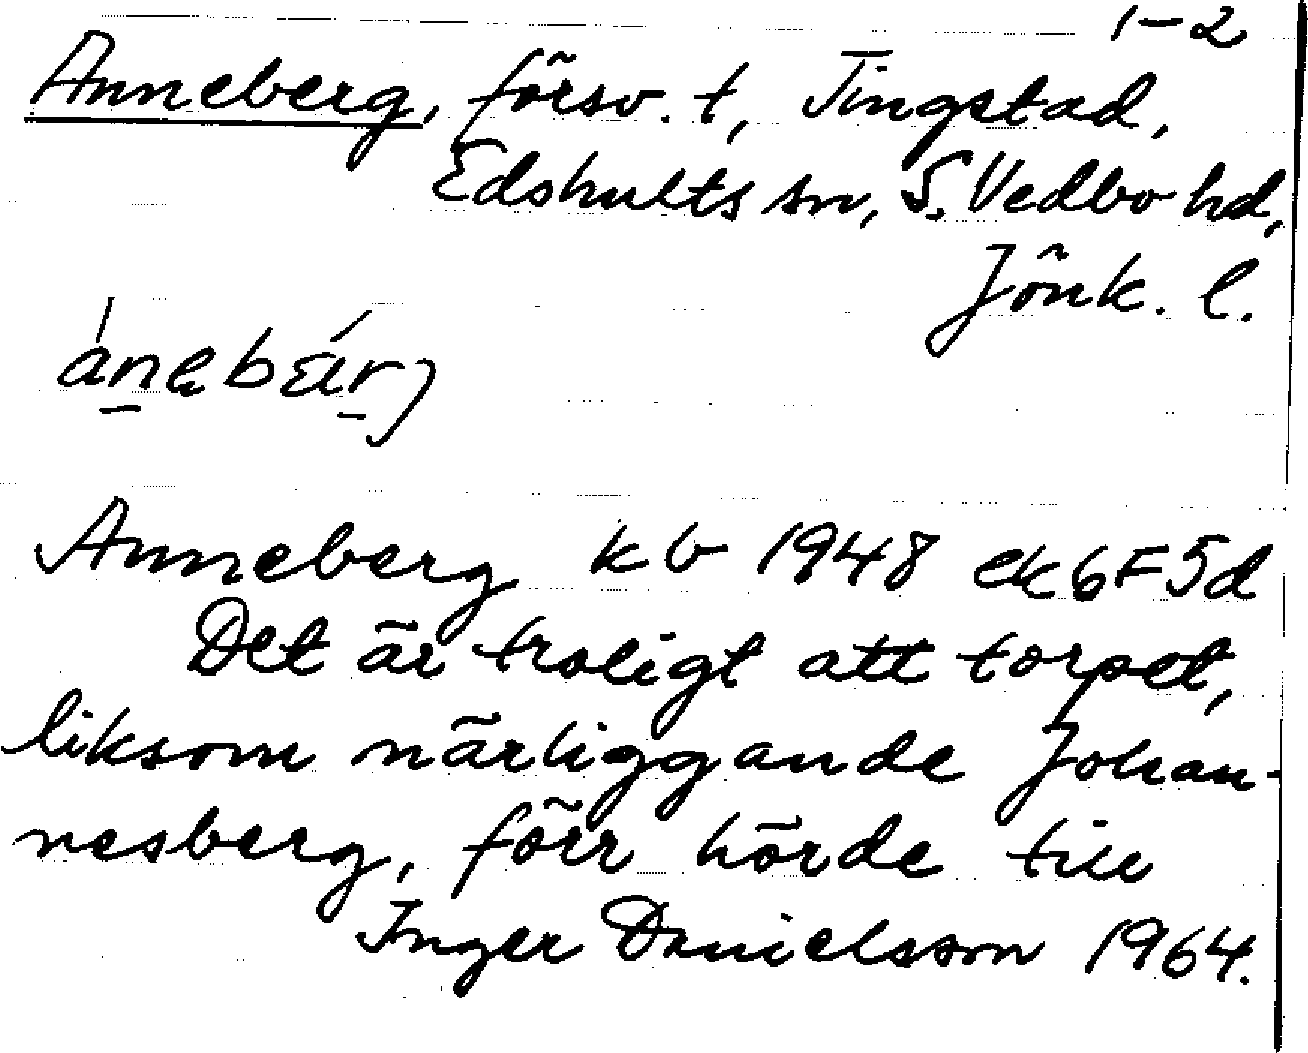 1–2
Anneberg, försv. t, Tingstad,
Edshults sn, S. Vedbo hd,
Jönk. l.
ànebǽrj
Anneberg kb 1948 ek 6F5d
Det är troligt att torpet,
liksom närliggande Johan-
nesberg, förr hörde till
Inger Danielsson 1964.